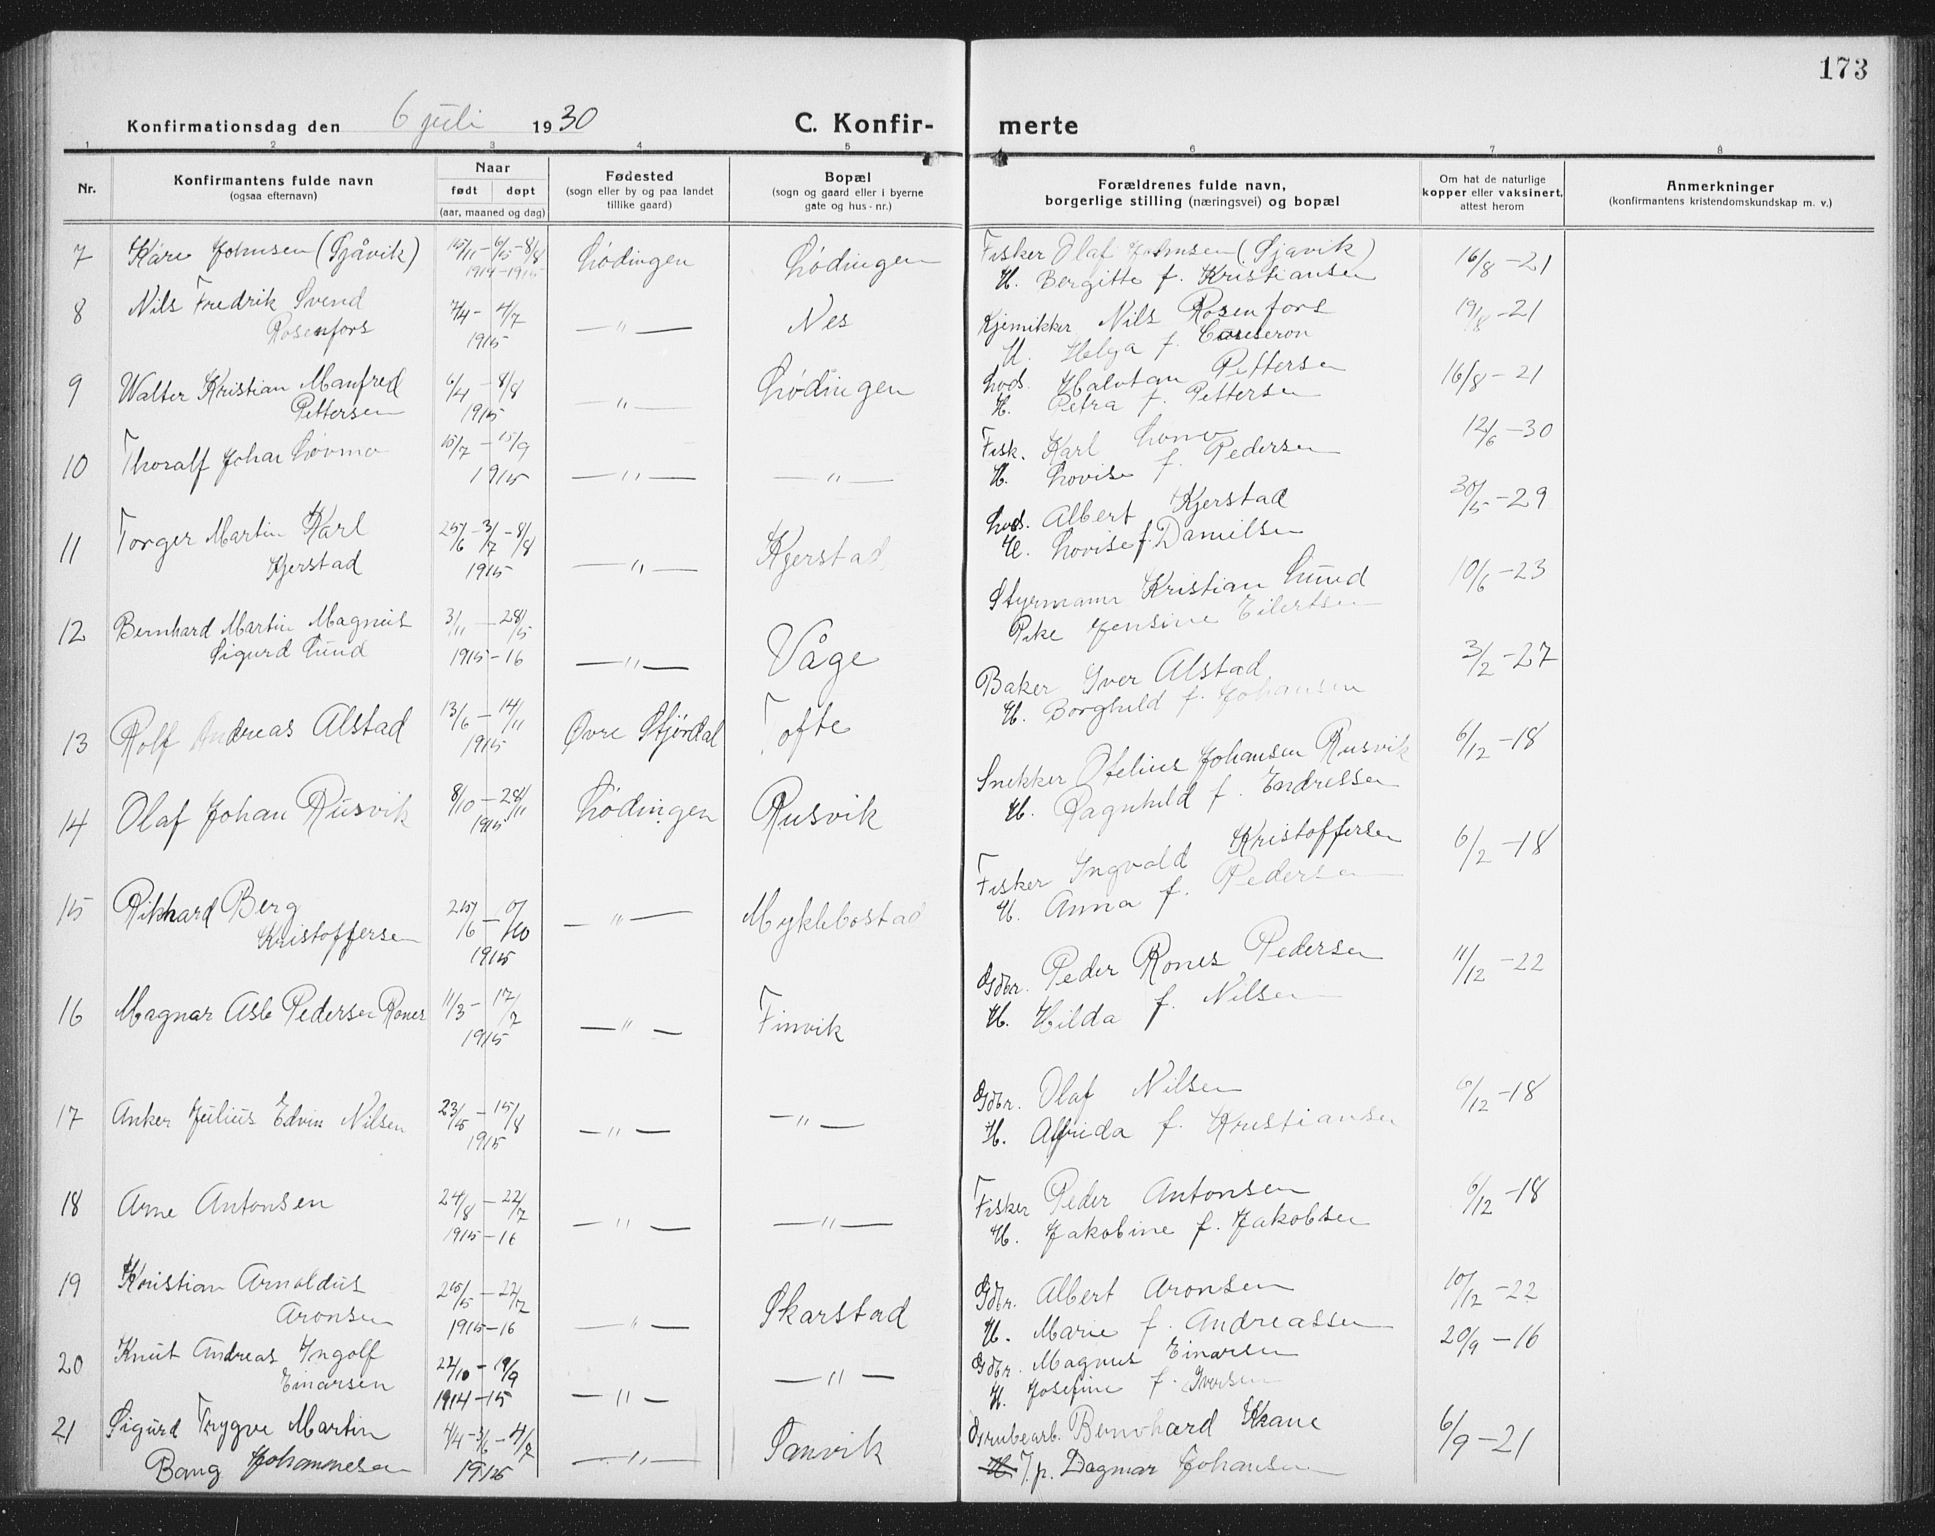 173
Konfirmationsdag den 6 juli 1930 C. Konfir- merte
1 2 3 4 5 6 7 8
Nr. Konfirmantens fulde navn (ogsaa efternavn) Naar født døpt (aar, maaned og dag) Fødested (sogn eller by og paa landet tillike gaard) Bopæl (sogn og gaard eller i byerne gate og hus-nr.) Forældrenes fulde navn, borgerlige stilling (næringsvei) og bopæl Om hat de naturlige kopper eller vaksinert, attest herom Anmerkninger (konfirmantens kristendomskundskap m. v.)
7 Kåre Johnsen (Sjåvik) 15/11 - 6/5 - 8/8 Lødingen Lødingen Fisker Olaf Johnsen (Sjavik) 16/8 - 21
1914-1915 H. Bergitte f. Kristiansen
8 Nils Fredrik Svend 7/4 - 4/7 — " — Nes Kjemikker Nils Rosenfors 19/8 - 21
Rosenfors 1915 H. Helga f.
9 Walter Kristian Manfred 6/4 - 8/8 — " — Lødingen Lods. Halvdan Pettersen 16/8 - 21
Pettersen 1915 H. Petra f. Pettersen
10 Thoralf Johan Løvmo 15/7 - 15/9 — " — — " — Fisk. Karl 12/6 - 30
1915 H. Lovise f. Pedersen
11 Torger Martin Karl 25/6 - 3/7 - 8/8 — " — Kjerstad Lods. Albert Kjerstad 30/5 - 29
Kjerstad 1915 H. Lovise f. Danielsen
12 Bernhard Martin Magnus 3/11 - 28/5 — " — Våge Styrmann Kristian Lund 10/6 - 23
Sigurd Lund 1915-16 Pike Jensine Eilertsen
13 Rolf Andreas Alstad 13/6 - 14/11 Øvre Stjørdal Tofte Baker Iver Alstad 3/2 - 27
1915 H. Borghild f. Johansen
14 Olaf Johan Rusvik 8/10 - 28/11 Lødingen Rusvik Snekker Otelius Johansen Rusvik 6/12 - 18
1915 H. Ragnhild f. Endresen
15 Rikhard Berg — " — Myklebostad Fisker Ingvald Kristoffersen 6/2 - 18
Kristoffersen 1915 H. Anna f. Pedersen
16 Magnar Asle Pedersen Rones 11/3 - 17/7 — " — Finvik Gdbr. Peder Rones Pedersen 11/12 - 22
1915 H. Hilda f. Nilsen
17 Anker Julius Edvin Nilsen 23/5 - 15/8 — " — — " — Gdbr. Olaf Nilsen 6/12 - 18
1915 H. Alfrida f. Kristiansen
18 Arne Antonsen 24/8 - 22/7 — " — — " — Fisker Peder Antonsen 6/12 - 18
1915-16 H. Jakobine f. Jakobsen
19 Kristian Arnoldus 25/5 - 22/7 — " — Skarstad Gdbr. Albert Aronsen 10/12 - 22
Aronsen 1915-16 H. Marie f. Andreassen
20 Knut Andreas Ingolf 22/10 - 19/9 — " — — " — Gdbr. Magnus Einarsen 20/9 - 16
Einarsen 1914-15 H. Josefine f. Iversen
21 Sigurd Trygve Martin 4/4 - 3/6 - 4/7 — " — Sanvik Grubearb. Bernhard Kkane 6/9 - 21
Bang Johannesen 1915 H. J. p. Dagmar Johansen